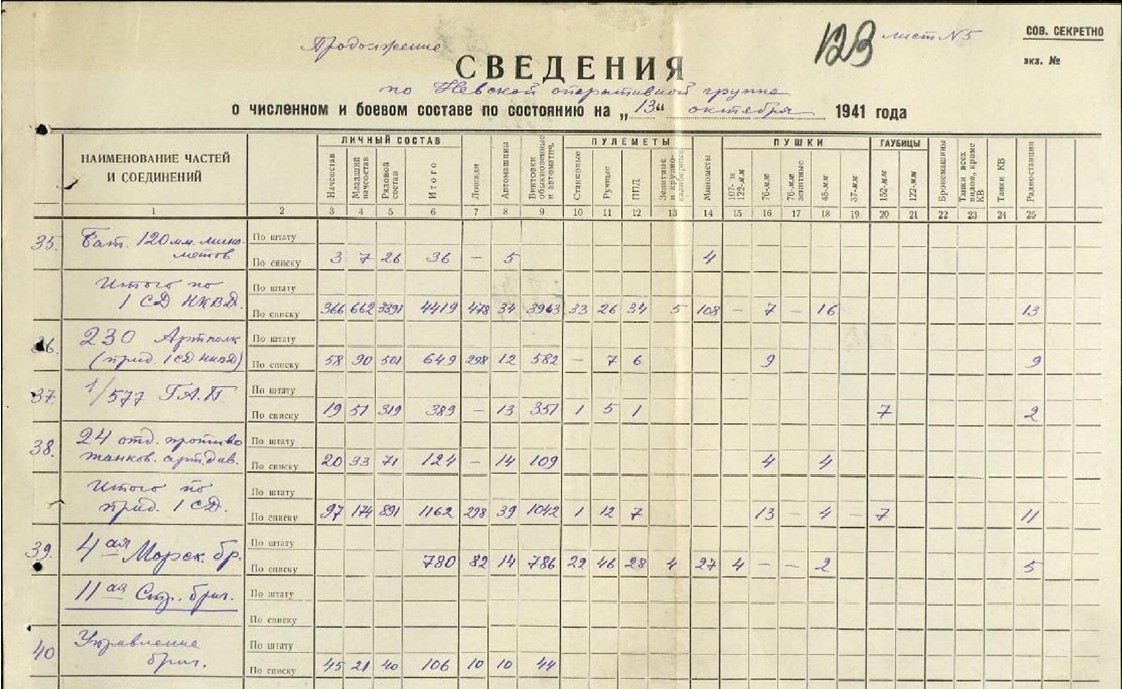 Продолжение
123 лист N5
СОВ. СЕКРЕТНО
экз. №
СВЕДЕНИЯ
по Невской оперативной группе
о численном и боевом составе по состоянию на „13“ октября 1941 года
НАИМЕНОВАНИЕ ЧАСТЕЙ И СОЕДИНЕНИЙ
ЛИЧНЫЙ СОСТАВ ПУЛЕМЕТЫ ПУШКИ ГАУБИЦЫ
Начсостав Младший начсостав Рядовой состав Итого Лошади Автомашины Винтовки обыкновенные и автоматич. Станковые Ручные ППД Зенитные и крупнокалиберные Минометы 107- и 122-мм 76-мм 76-мм зенитные 45-мм 37-мм 152-мм 122-мм Бронемашины Танки всех видов, кроме КВ Танки КВ Радио-станции
1 2 3 4 5 6 7 8 9 10 11 12 13 14 15 16 17 18 19 20 21 22 23 24 25
35. Бат. 120 мм. мино- По штату
метов По списку 3 7 26 36 – 5 4
Итого по По штату
1 СД НКВД. По списку 366 662 3391 4419 478 34 3963 33 26 34 5 108 – 7 – 16 13
36. 230 Артполк По штату
(прид. 1 СД НКВД) По списку 58 90 501 649 298 12 582 – 7 6 9 9
37. 1/577 Г.А.П По штату
По списку 19 51 319 389 – 13 351 1 5 1 7 2
38. 24 отд. противо По штату
танков. арт. див. По списку 20 33 71 124 – 14 109 4 4
Итого по По штату
прид. 1 СД. По списку 97 174 891 1162 298 39 1042 1 12 7 13 – 4 – 7 11
39. 4ая Морск. бр. По штату
По списку 780 82 14 786 22 46 28 4 27 4 – – 2 5
11ая Стр. бриг. По штату
По списку
40 Управление По штату
бриг. По списку 45 21 40 106 10 10 44